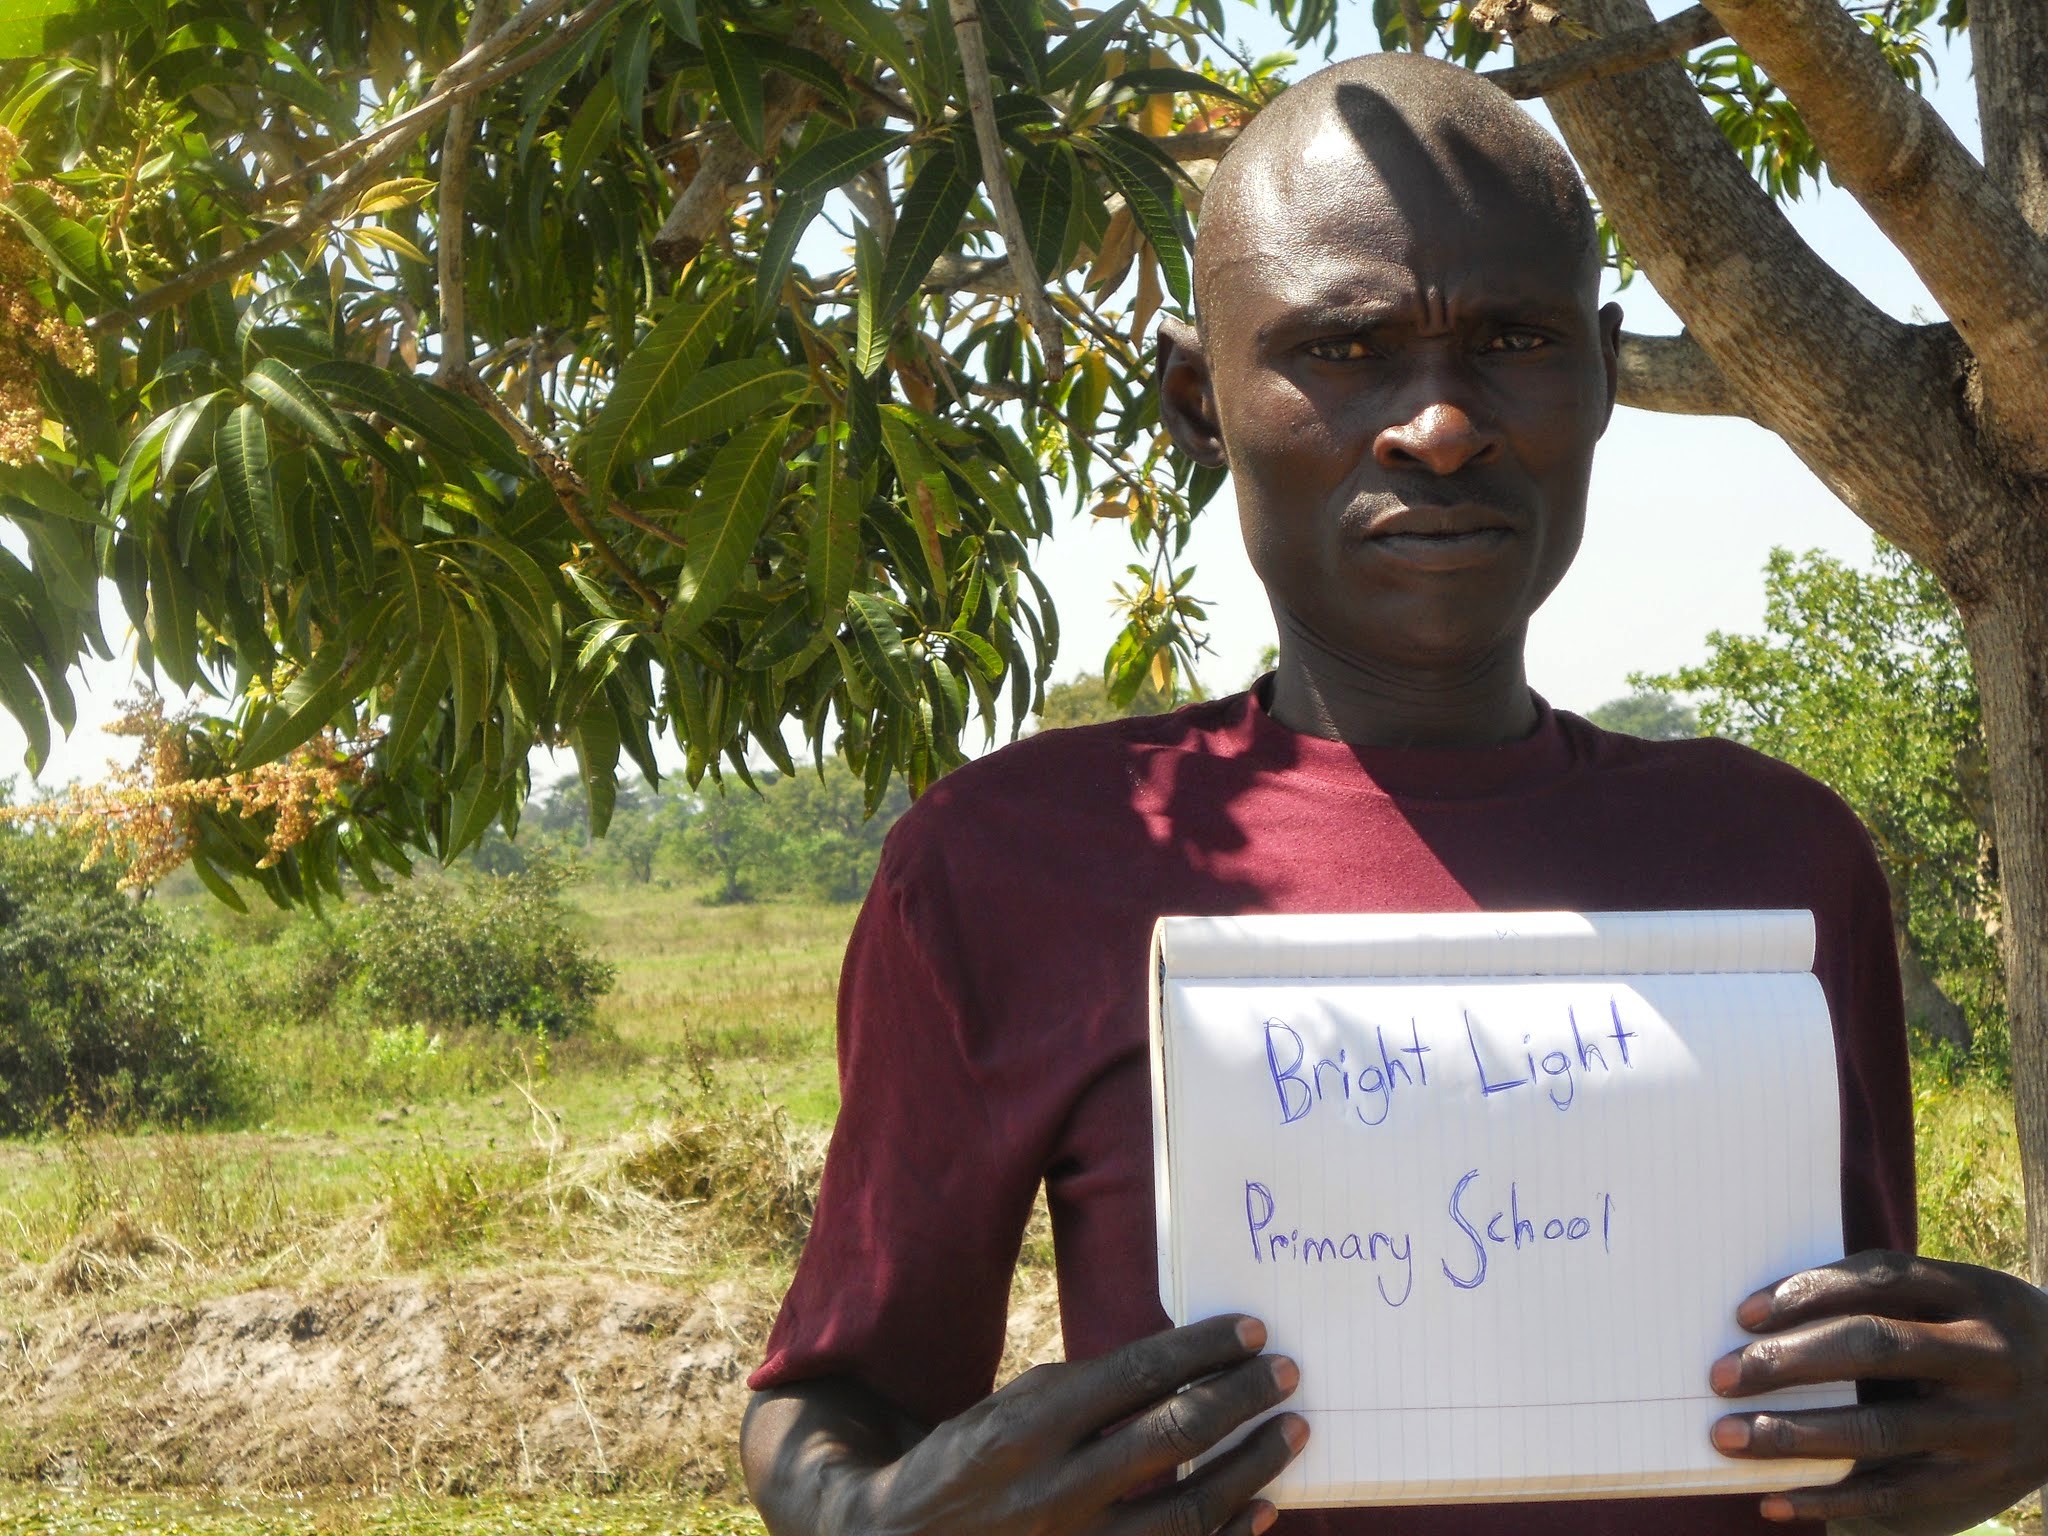 Bright Light
Primary School